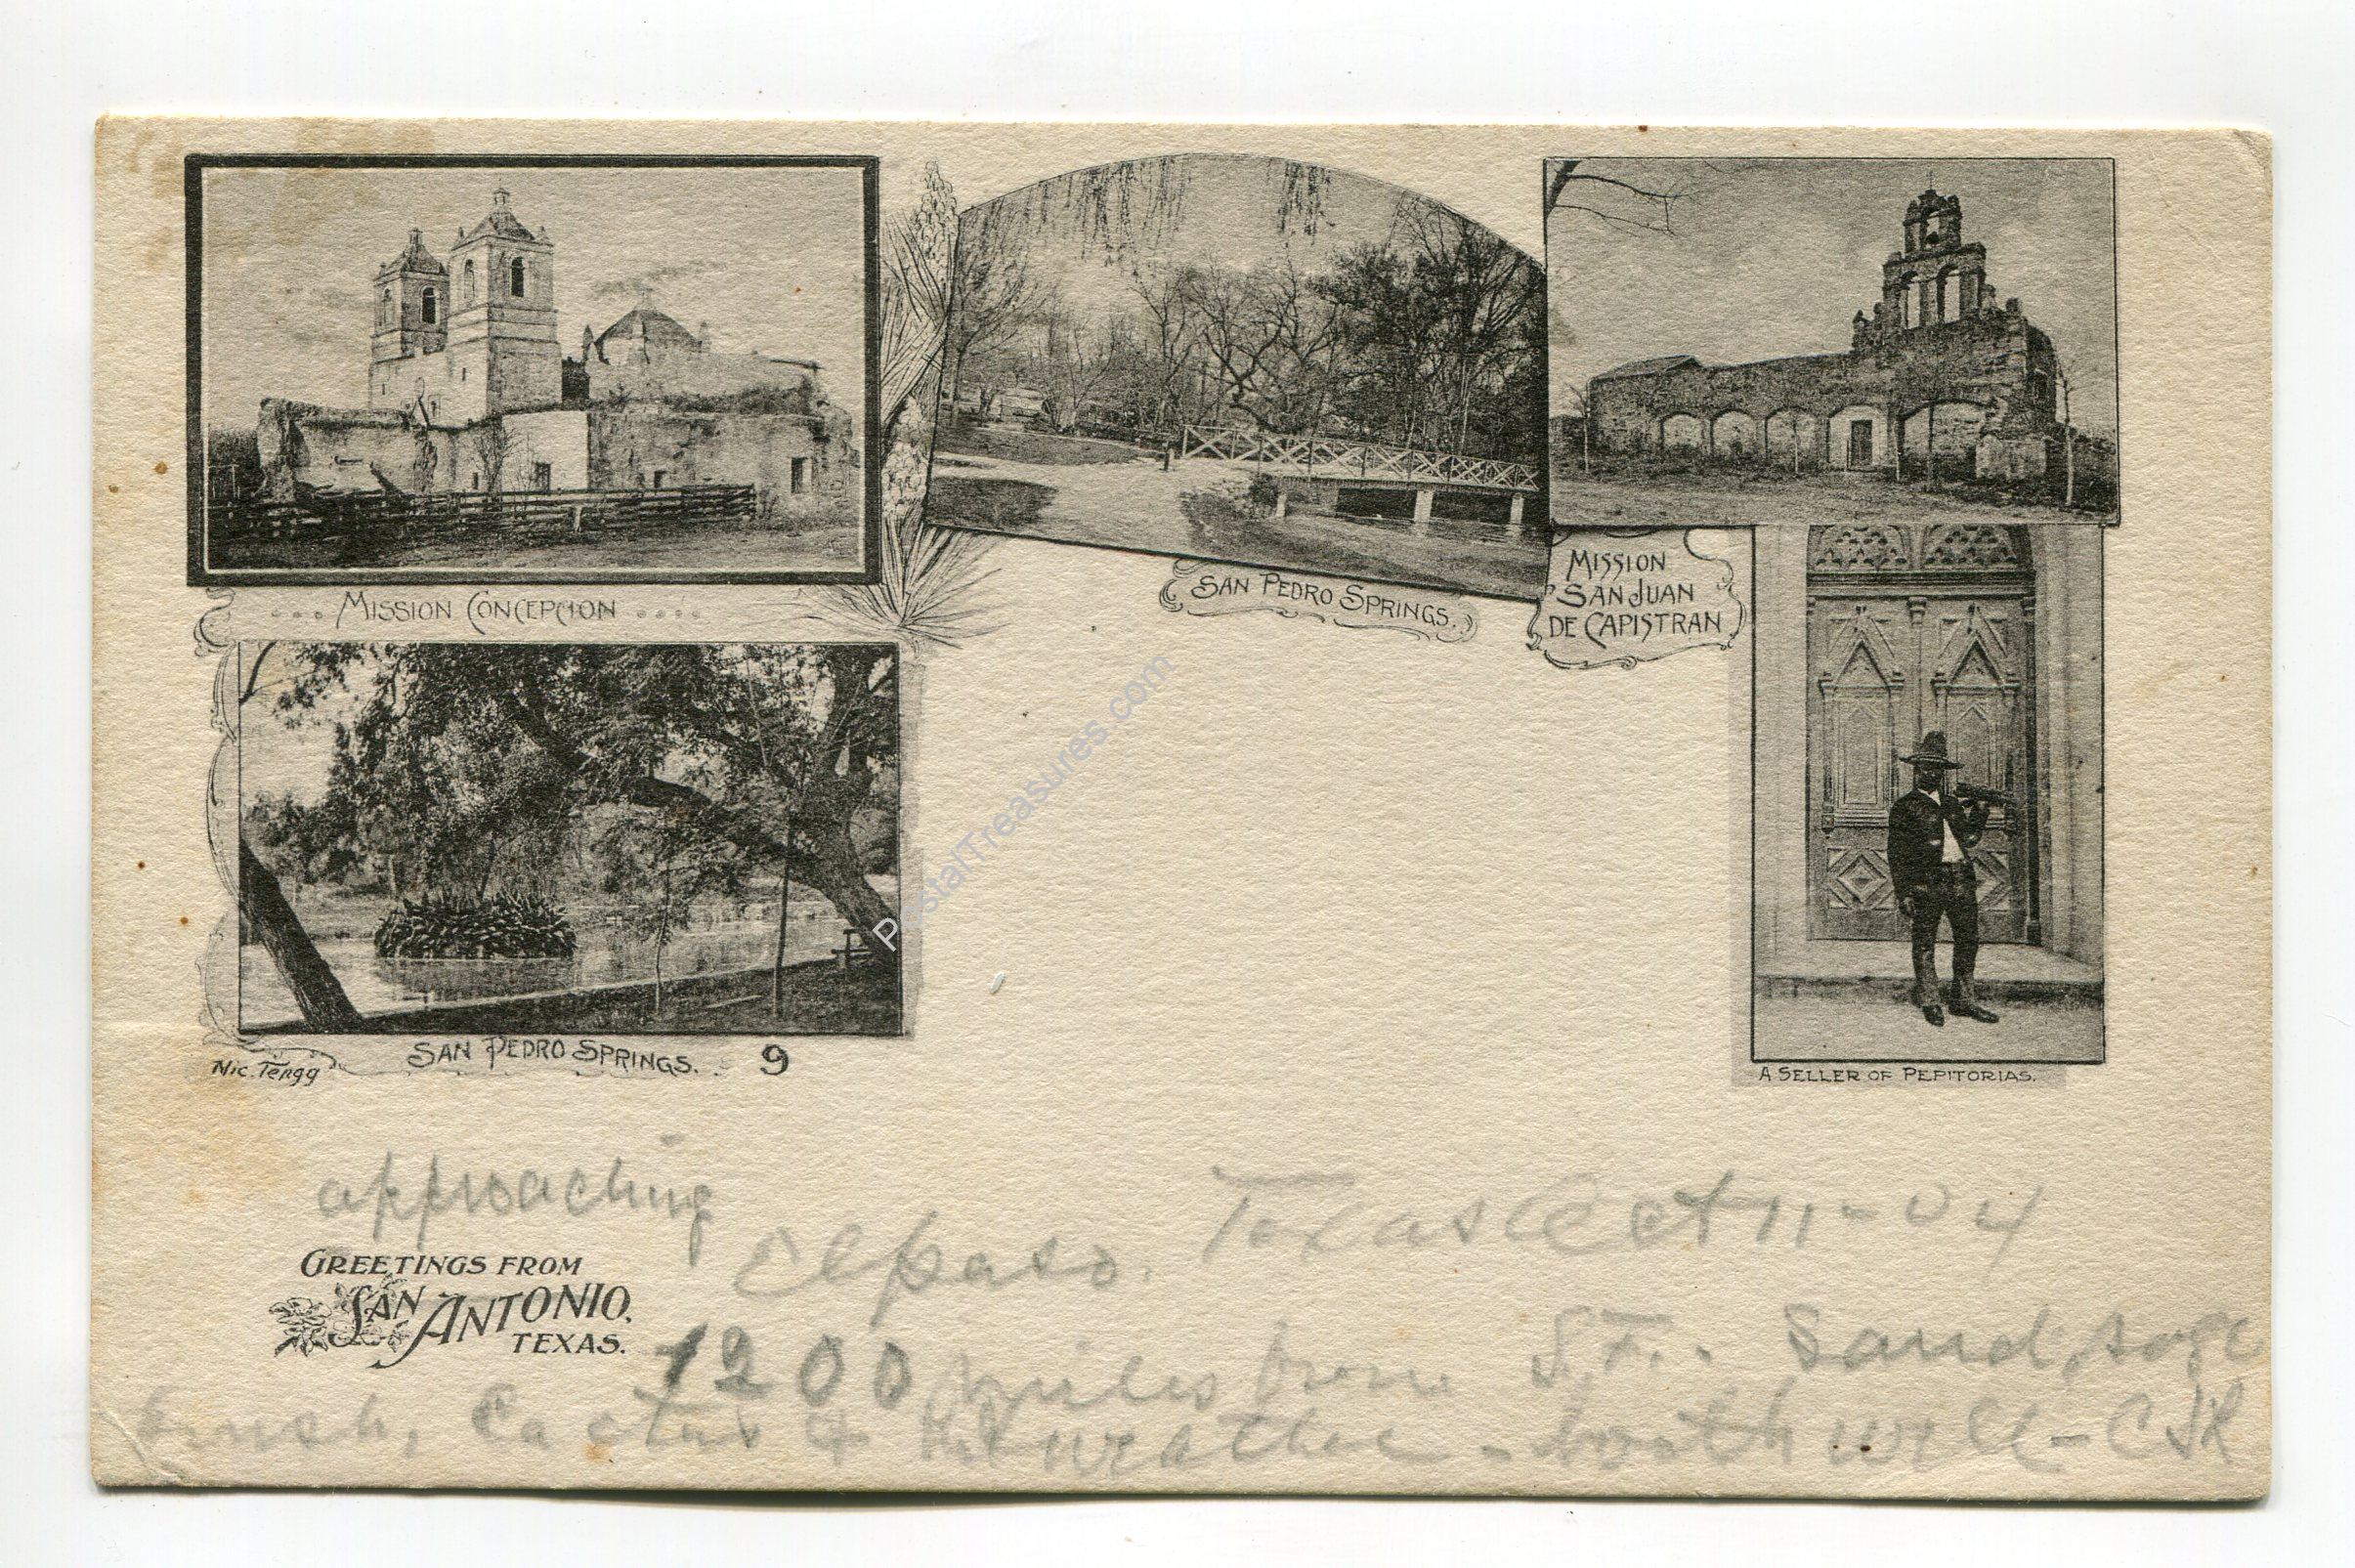 MISSION CONCEPCION
SAN PEDRO SPRINGS.
MISSION
SAN JUAN
DE CAPISTRAN
PostalTreasures.com
Nic. Tengg
SAN PEDRO SPRINGS. 9
A SELLER OF PEPITORIAS.
approaching
Elpaso. Texas Oct 11-04
GREETINGS FROM
SAN ANTONIO,
TEXAS.
1200 miles from S.F. Sand, sage
brush, Cactus & Hot weather - both well -